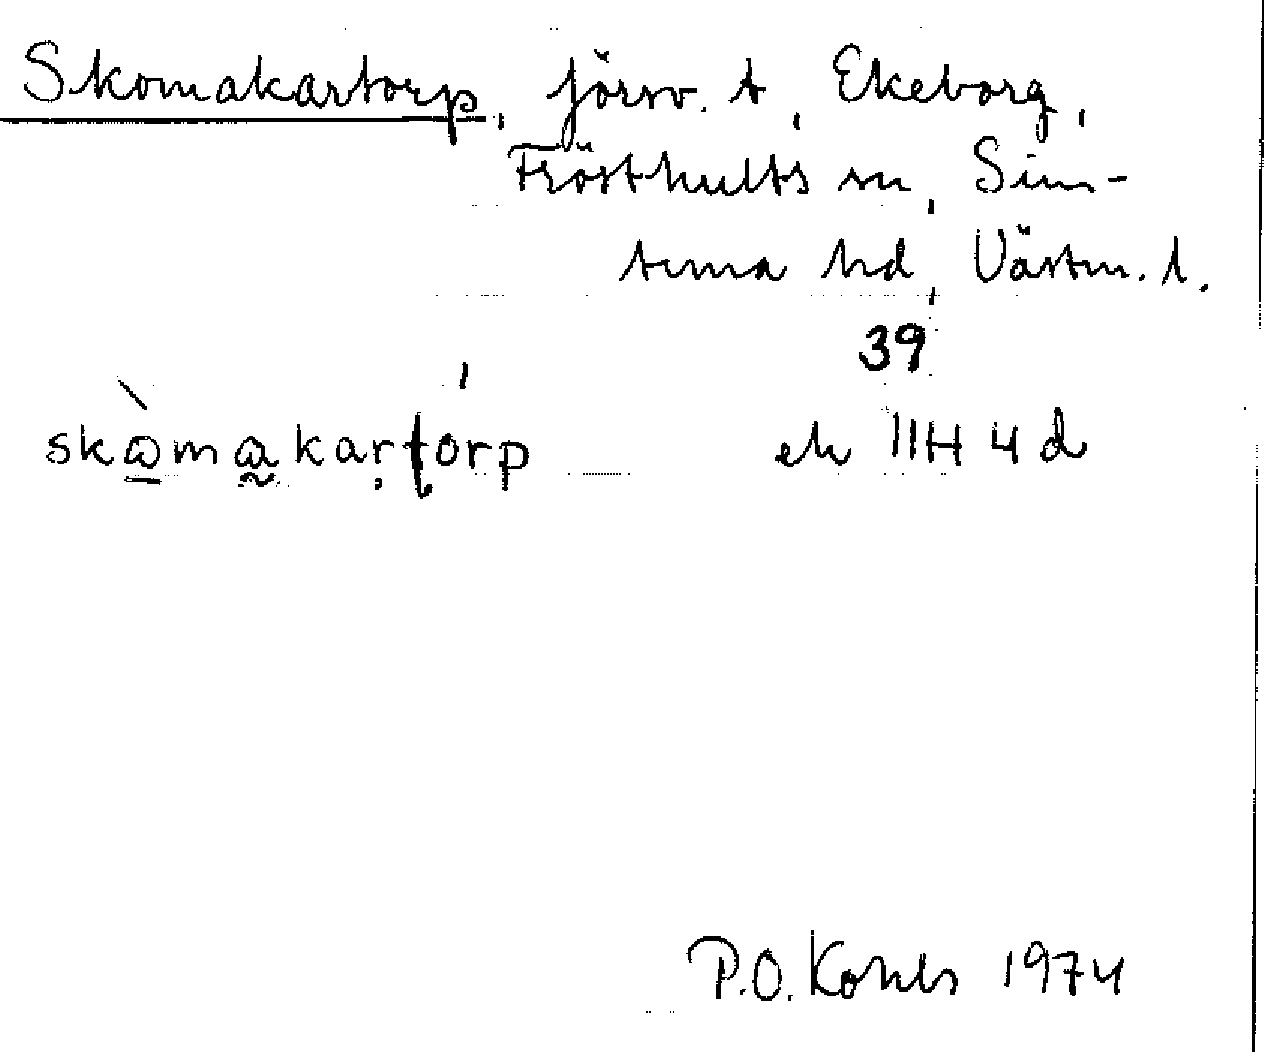 Skomakartorp, försv. t, Ekeborg,
Frösthults sn, Sim-
tuna hd, Västm. l.
39
skɷ̀makarţórp ek 11H 4d
P.O. Kohls 1974